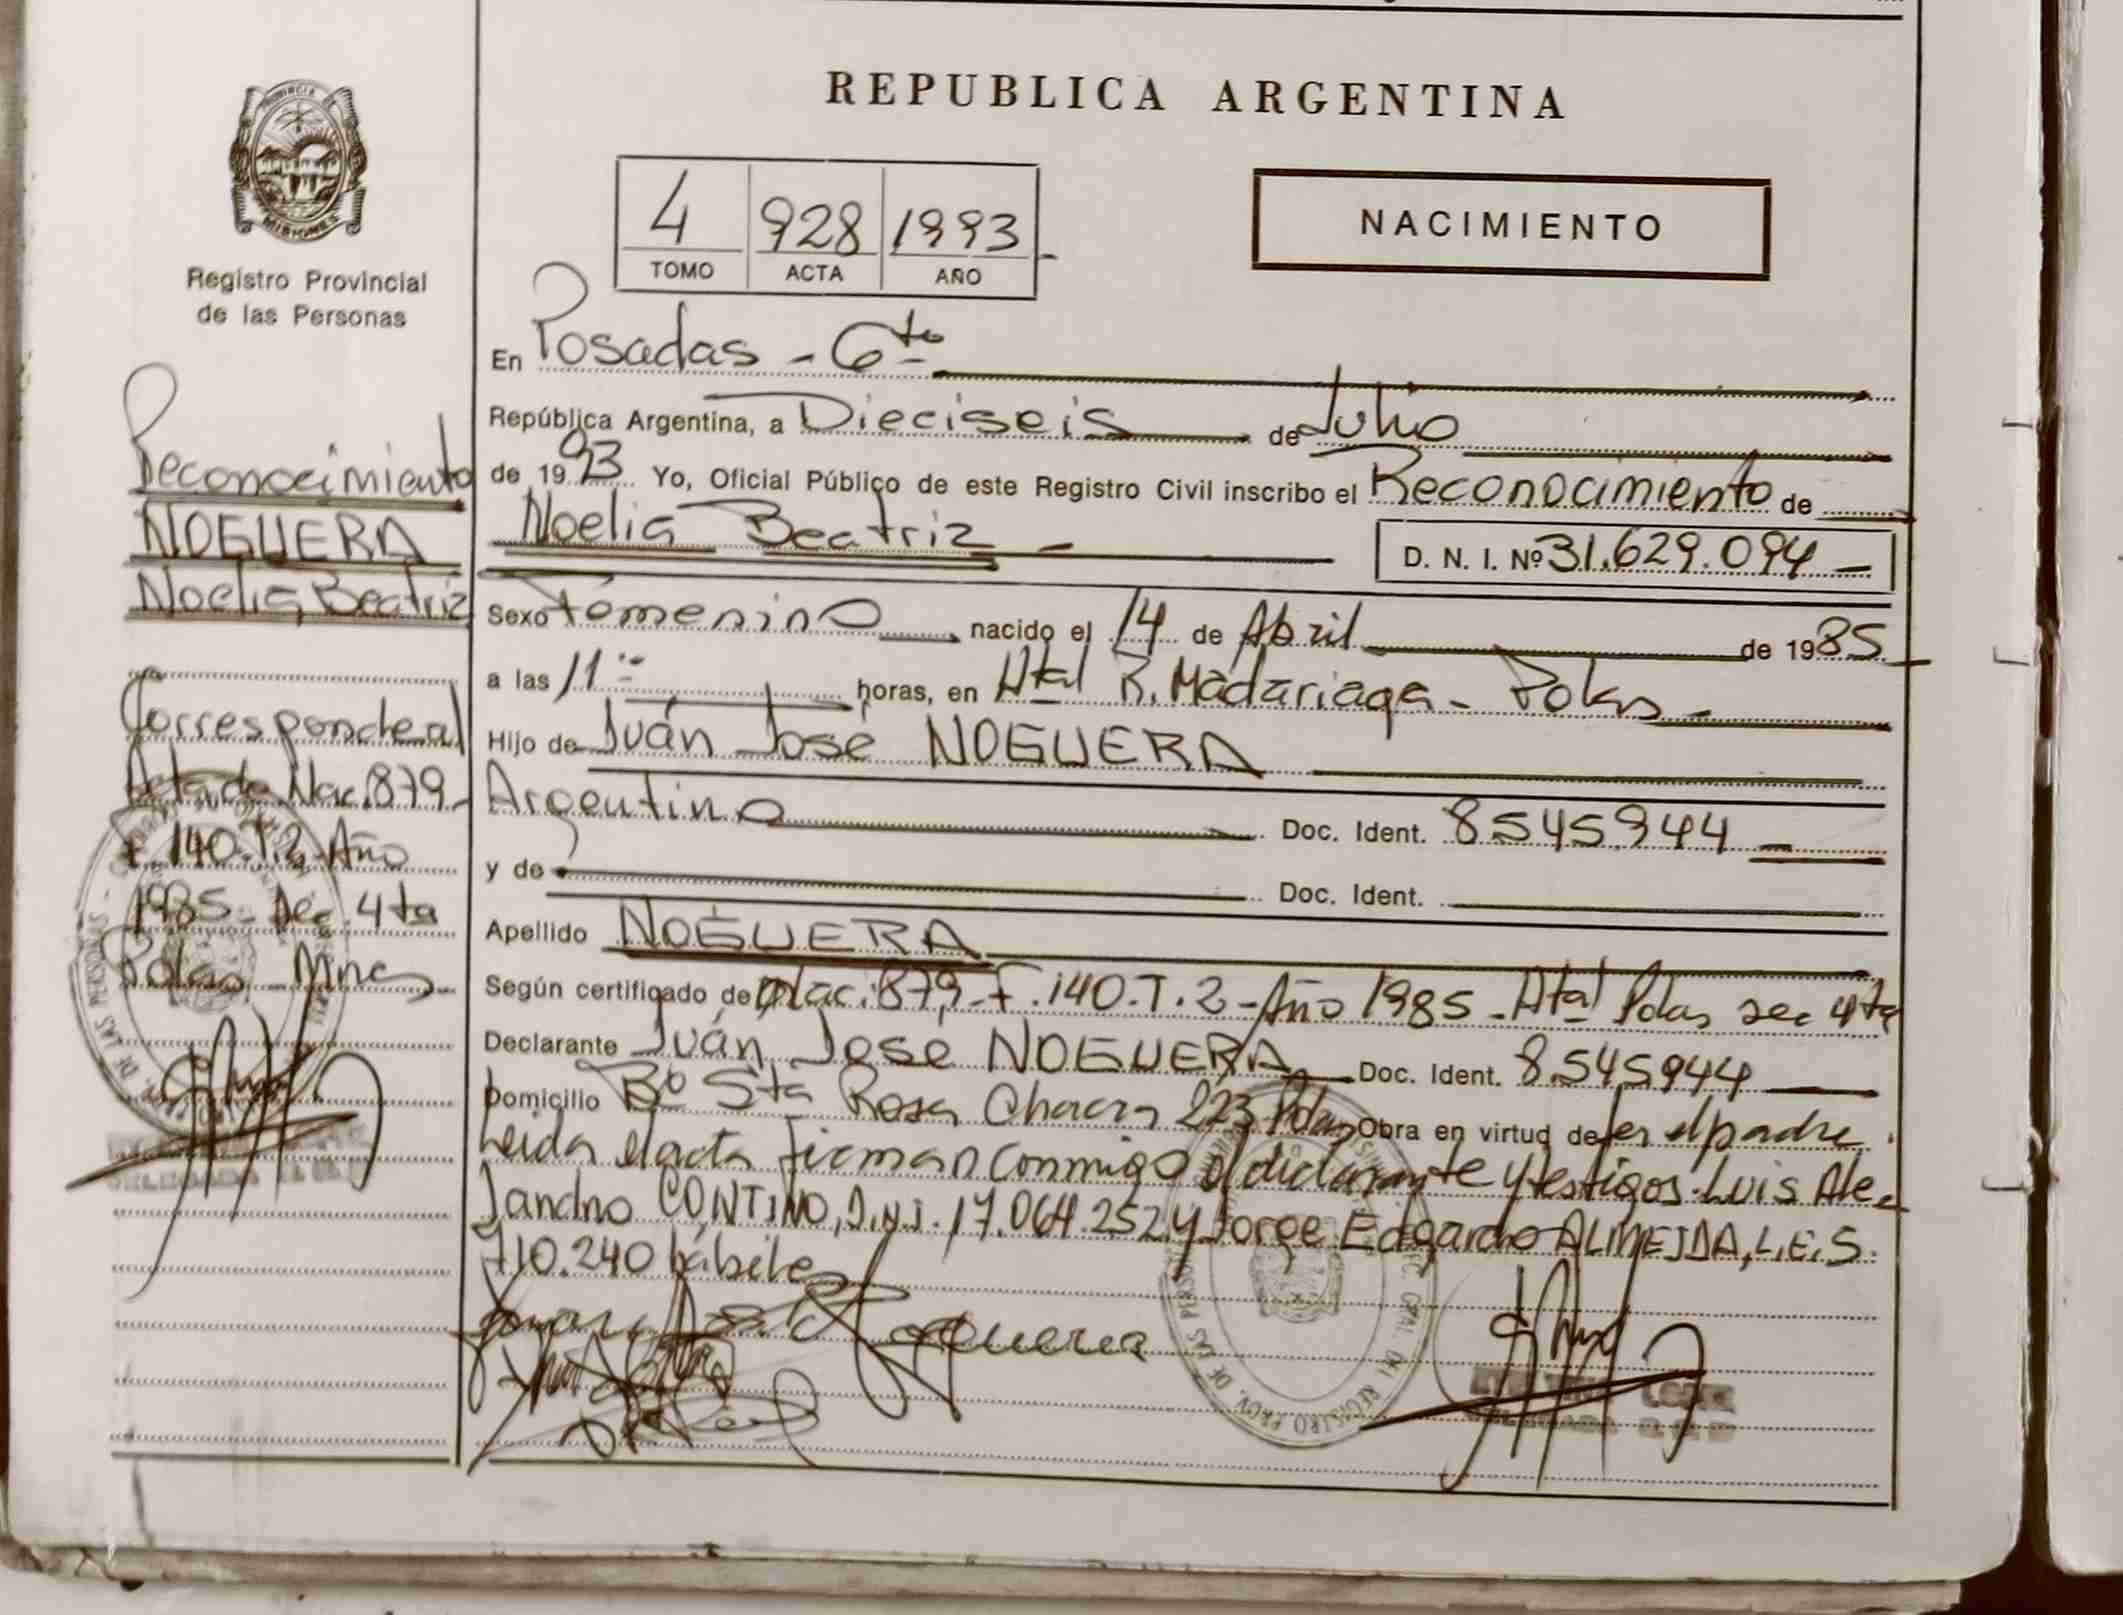 REPUBLICA ARGENTINA
PROVINCIA DE
MISIONES
Registro Provincial
de las Personas
4 928 1993
TOMO ACTA AÑO
NACIMIENTO
En Posadas - 6ta
República Argentina, a Dieciseis de Julio
de 1993 Yo, Oficial Público de este Registro Civil inscribo el Reconocimiento de
Noelia Beatriz - D. N. I. Nº 31.629.094
Sexo Femenino nacido el 14 de Abril de 1985
a las 11 horas, en Htal R. Madariaga - Pdas -
Hijo de Juán José NOGUERA
Argentino Doc. Ident. 8545944
y de Doc. Ident.
Apellido NOGUERA
Según certificado de Nac. 879 - F. 140. T. 2 - Año 1985 - Htal Pdas sec 4ta
Declarante Juán José NOGUERA Doc. Ident. 8.545944
Domicilio Bº Sta Rosa Chacra 223 Pdas Obra en virtud de ser el padre.
Leida el acta firman conmigo el declarante y testigos Luis Ale-
jandro CONTINO, D.N.I. 17.064.252 y Jorge Edgardo ALMEIDA, L.E. 5.
710.240 hábiles
Reconocimiento
NOGUERA
Noelia Beatriz
Corresponde al
Acta de Nac. 879-
F. 140. T. 2 - Año
1985 - Sec. 4ta
Pdas Mnes